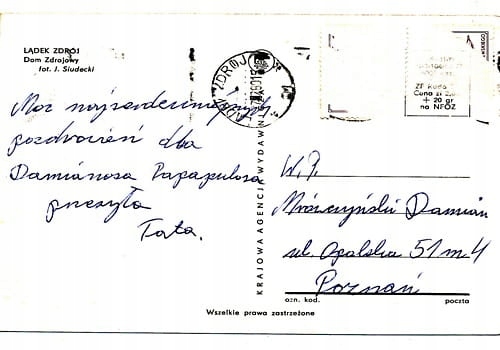 LĄDEK ZDRÓJ
Dom Zdrojowy
fot. J. Siudecki
Moc najserdeczniejszych
pozdrowień dla
Damianosa Papapulosa
przesyła
Tata.
KRAJOWA AGENCJA WYDAWN
ZDRÓJ
ZF Ruda
Cena zł 2,-
+ 20 gr
na NFOZ
W.P.
Mroczyński Damian
ul. Opolska 51 m 4
Poznań
ozn. kod. poczta
Wszelkie prawa zastrzeżone